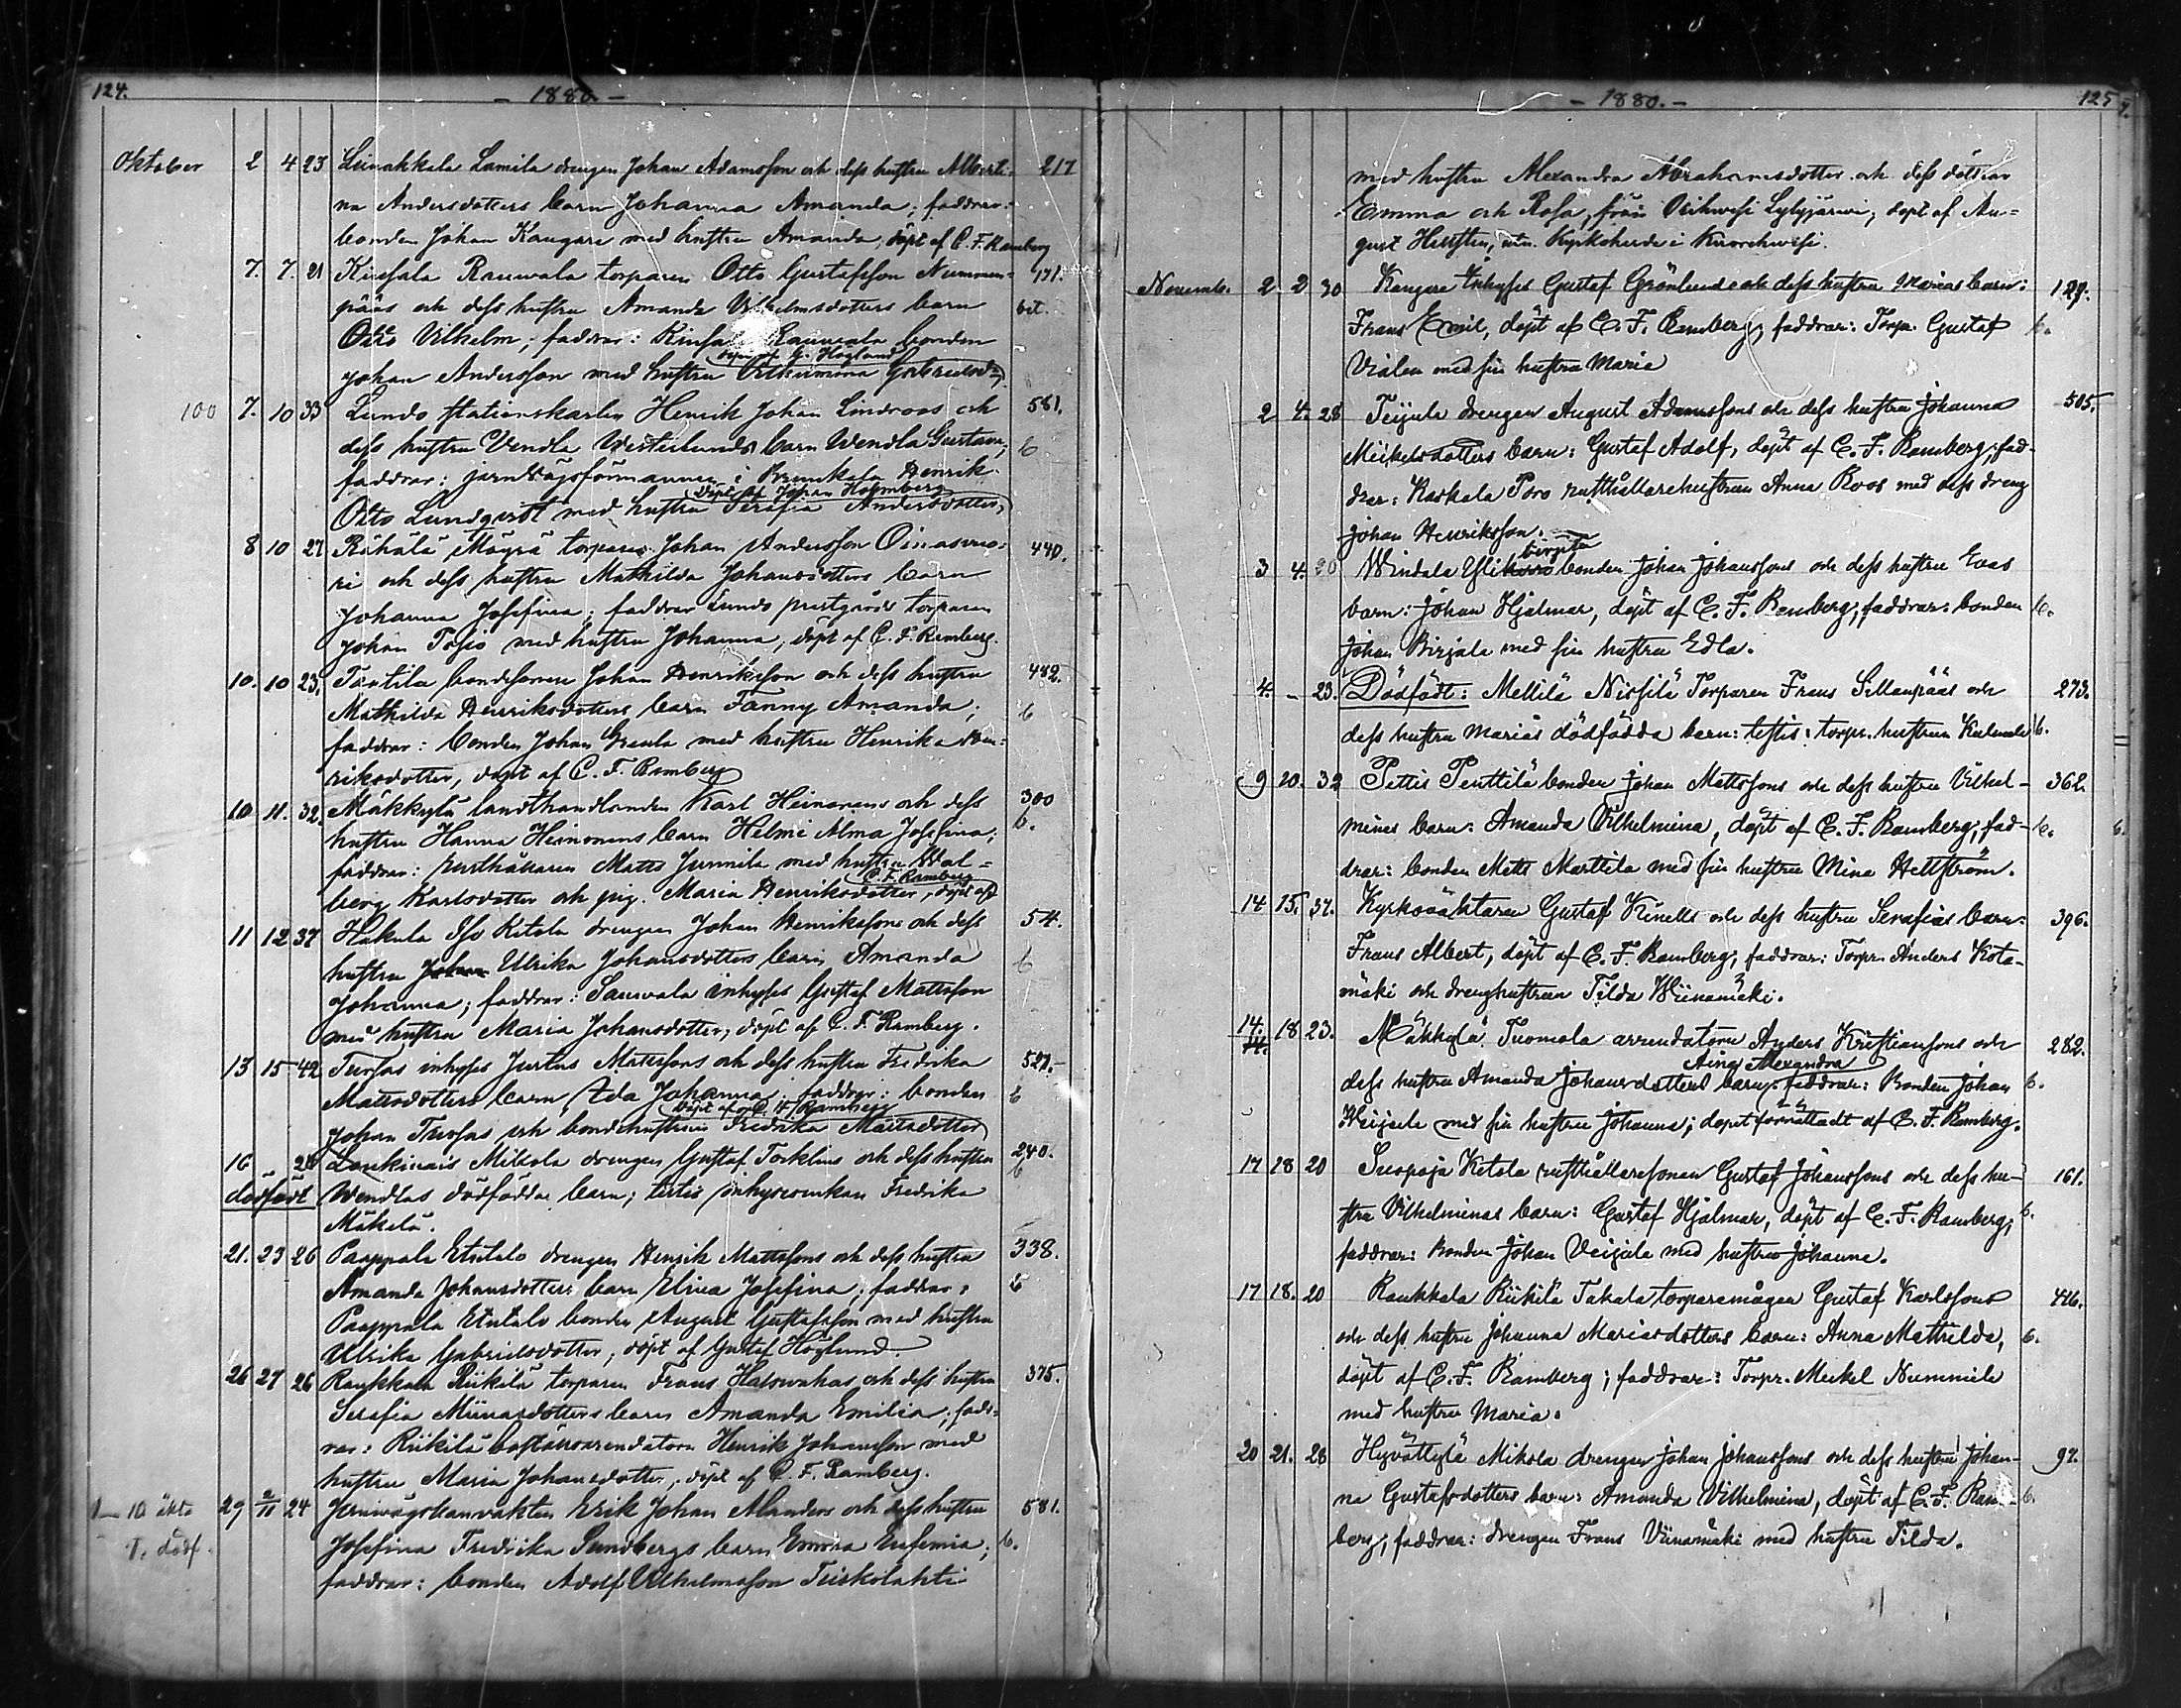 124.
- 1880. -
Oktober 2 4 23 Liinakkala Lamila drengen Johan Adamsson och dess hustru Alberti- 217
na Andersdotters barn Johanna Amanda; faddrar:
bonden Johan Kangare med hustru Amanda, döpt af C. F. Ramberg
7. 7 21 Rauwala torparen Otto Gustafsson Nummen- 171.
pääs och dess hustru Amanda Vilhelmsdotters barn
Otto Vilhelm; faddrar: Rauwala bonden
döpt af G. Höglund
Johan Andersson med hustru
100 7. 10 33 Lundo stationskarlen Henrik Johan Lindroos och 581.
dess hustru Vendla Westerlunds barn Wendla Gustava; b
faddrar: jernvägsförmannen i Henrik
döpt af Johan Holmberg
Otto Lundqvist med hustru Serafia Andersdotter,
8 10 27 Rähälä Mäyrä torparen Johan Andersson Oinasvuo- 440.
ri och dess hustru Mathilda Johansdotters barn
Johanna Josefina; faddrar Lundo prestgårds torparen
Johan med hustru Johanna, döpt af C. F. Ramberg.
10. 10 23. Tintilä bondesonen Johan Henriksson och dess hustru 482.
Mathilda Henriksdotters barn Fanny Amanda; b
faddrar: bonden Johan med hustru Henrika Hen-
riksdotter, döpt af C. F. Ramberg
10 11. 32. Mäkkylä landthandlanden Karl Heinonens och dess 300
hustru Hanna Heinonens barn Helmi Alma Josefina; b.
faddrar: rusthållaren Matts Junnila med hustru Wal-
C. F. Ramberg
borg Karlsdotter och pig. Maria Henriksdotter, döpt af
11 12 37 Hakula Iso Kitola drengen Johan Henrikssons och dess 54.
hustru Ulrika Johansdotters barn Amanda b
Johanna; faddrar: Sauwala inhyses Gustaf Mattsson
med hustru Maria Johansdotter, döpt af C. F. Ramberg.
13 15 42 inhyses Justus Matssons och dess hustru Fredrika 521.
Mattsdotters barn Ida Johanna faddrar: bonden b
döpt af C. F. Ramberg
Johan och bondhustrun Fredrika Mattsdotter
16 26 Loukinais Mikola drengen Gustaf Torkelins och dess hustru 240.
dödfödt Wendlas dödfödda barn; testis inhyseenkan Fredrika b
Mäkelä.
21. 23 26 Paappala Etutalo drengen Henrik Mattssons och dess hustru 338.
Amanda Johansdotters barn Elina Josefina; faddrar: b
Paappala Etutalo bonden August Gustafsson med hustru
Ulrika Gabrielsdotter, döpt af Gustaf Höglund.
26 27 26 Raukkala Riikilä torparen Frans och dess hustru 375.
Serafia barn Amanda Emilia; fadd-
rar: Riikilä Henrik Johansson med
hustru Maria Johansdotter, döpt af C. F. Ramberg.
10 äkta 29 2/11 24 Jernvägsbanvakten Erik Johan Alanders och dess hustru 581.
1. dödf. Josefina Fredrika Sundbergs barn Emma Eufemia; b.
faddrar: bonden Adolf Vilhelmsson
125
- 1880. -
med hustru Alexandra Abrahamsdotter och dess döttrar
Emma och Rosa, från Orihvesi Lylyjärwi, döpt af Au-
gust
Novemb. 2. 2 30 Kangare Inhyses Gustaf Grönlunds och dess hustru Marias barn: 129.
Frans Emil, döpt af C. F. Ramberg, faddrar: Torpr. Gustaf b.
Vialen med sin hustru Maria
2 4. 28 Teijula drengen August Adamssons och dess hustru Johanna 505.
Mickelsdotters barn: Gustaf Adolf, döpt af C. F. Ramberg; fad-
drar: Kaskala Poro rusthållarehustrun Anna Roos med dess dreng
Johan Henriksson.
3 4. 20 Windala bonden Johan Johanssons och dess hustru Evas
barn: Johan Hjalmar, döpt af C. F. Ramberg; faddrar: bonden b.
Johan Pirjala med sin hustru Edla.
4. - 23. Dödfödt: Mellilä Nissilä Torparen Frans Sillanpääs och 273.
dess hustru Marias dödfödda barn: testis: torpr. hustrun b.
9 20. 32 Pettis Penttilä bonden Johan Mattssons och dess hustru Vilhel- 362.
minas barn: Amanda Vilhelmina, döpt af C. F. Ramberg; fad- b.
drar: bonden Matts Marttila med sin hustru Mina Hellström.
14 15. 37. Kyrkoväktaren Gustaf Kinells och dess hustru Serafias barn: 396.
Frans Albert, döpt af C. F. Ramberg, faddrar: Torpr. Anders Kota-
mäki och drenghustrun Tilda Wiinamäki.
14. 18 23. Mäkkylä Tuomola arrendatorn Anders Kristianssons och 282.
Aina Alexandra
dess hustru Amanda Johansdotters barn: faddrar: Bonden Johan b.
Weijala med sin hustru Johanna; dopet förrättadt af C. F. Ramberg.
17 18 20 Suopoja Ketola rusthållaresonen Gustaf Johanssons och dess hu- 161.
stru Vilhelminas barn: Gustaf Hjalmar, döpt af C. F. Ramberg, b.
faddrar: Bonden Johan Veijala med hustru Johanna.
17 18. 20 Raukkala Riikilä Takala torparemågen Gustaf Karlssons 416.
och dess hustru Johanna Mariasdotters barn: Anna Mathilda, b.
döpt af C. F. Ramberg; faddrar: Torpr. Mickel Nummila
med hustru Maria.
20 21. 28 Hyvättylä Mikola drengen Johan Johanssons och dess hustru Johan- 97.
na Gustafsdotters barn: Amanda Vilhelmina, döpt af C. F. Ram- b.
berg, faddrar: drengen Frans Viinamäki med hustru Tilda.